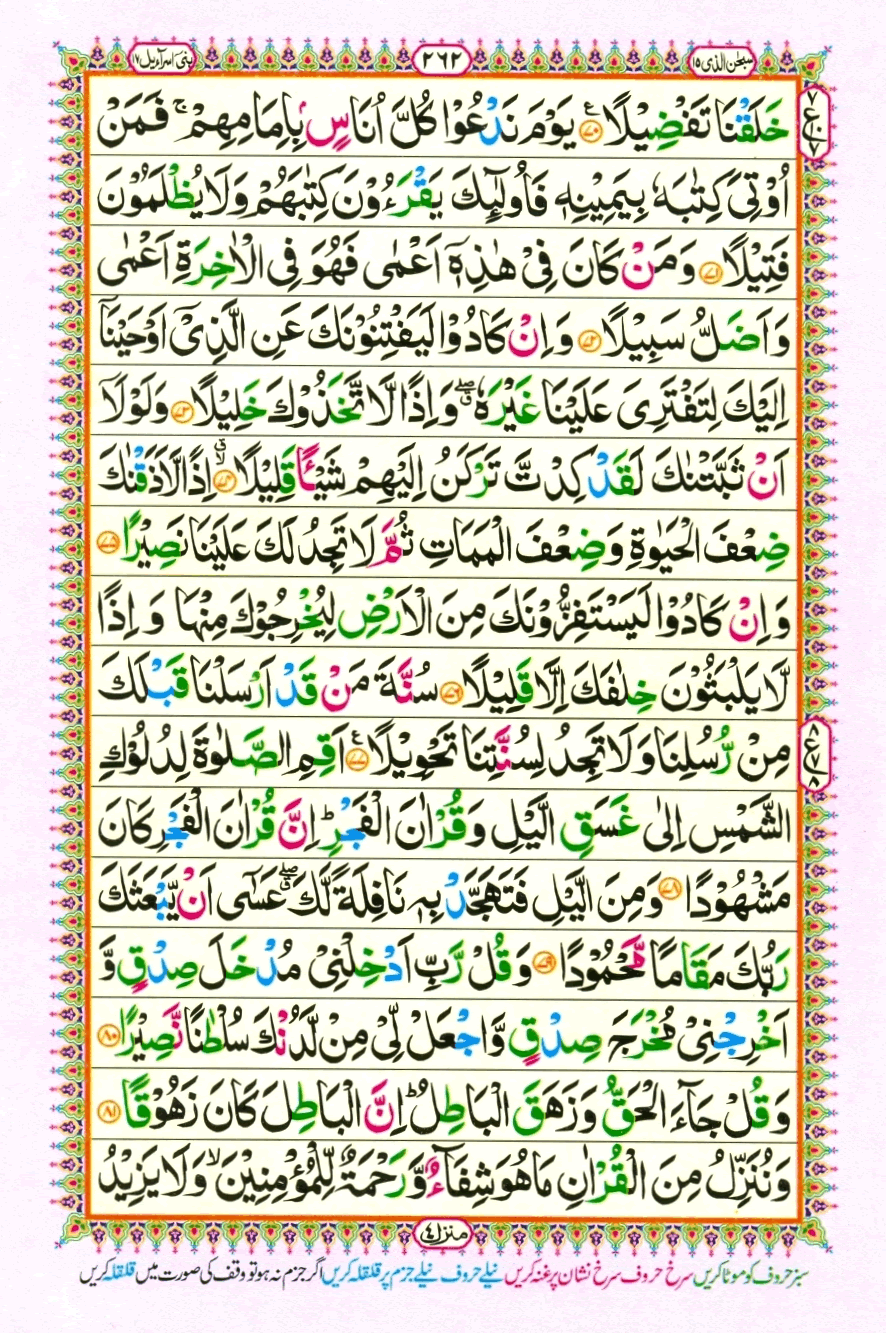 سبحن الذی ۱۵ ۲۶۲ بنی اسرآءیل ۱۷
خَلَقْنَا تَفْضِیْلًا ﴿۷۰﴾ یَوْمَ نَدْعُوْا كُلَّ اُنَاسٍۭ بِاِمَامِهِمْ ۚ فَمَنْ
اُوْتِیَ كِتٰبَهٗ بِیَمِیْنِهٖ فَاُولٰٓئِكَ یَقْرَءُوْنَ كِتٰبَهُمْ وَلَا یُظْلَمُوْنَ
فَتِیْلًا ﴿۷۱﴾ وَمَنْ كَانَ فِیْ هٰذِهٖۤ اَعْمٰی فَهُوَ فِی الْاٰخِرَةِ اَعْمٰی
وَاَضَلُّ سَبِیْلًا ﴿۷۲﴾ وَاِنْ كَادُوْا لَیَفْتِنُوْنَكَ عَنِ الَّذِیْۤ اَوْحَیْنَاۤ
اِلَیْكَ لِتَفْتَرِیَ عَلَیْنَا غَیْرَهٗ ۖۗ وَاِذًا لَّاتَّخَذُوْكَ خَلِیْلًا ﴿۷۳﴾ وَلَوْلَاۤ
اَنْ ثَبَّتْنٰكَ لَقَدْ كِدْتَّ تَرْكَنُ اِلَیْهِمْ شَیْـًٔا قَلِیْلًا ﴿۷۴﴾ ۙۗ اِذًا لَّاَذَقْنٰكَ
ضِعْفَ الْحَیٰوةِ وَضِعْفَ الْمَمَاتِ ثُمَّ لَا تَجِدُ لَكَ عَلَیْنَا نَصِیْرًا ﴿۷۵﴾
وَاِنْ كَادُوْا لَیَسْتَفِزُّوْنَكَ مِنَ الْاَرْضِ لِیُخْرِجُوْكَ مِنْهَا وَاِذًا
لَّا یَلْبَثُوْنَ خِلٰفَكَ اِلَّا قَلِیْلًا ﴿۷۶﴾ سُنَّةَ مَنْ قَدْ اَرْسَلْنَا قَبْلَكَ
مِنْ رُّسُلِنَا وَلَا تَجِدُ لِسُنَّتِنَا تَحْوِیْلًا ﴿۷۷﴾ اَقِمِ الصَّلٰوةَ لِدُلُوْكِ
الشَّمْسِ اِلٰی غَسَقِ الَّیْلِ وَقُرْاٰنَ الْفَجْرِ ؕ اِنَّ قُرْاٰنَ الْفَجْرِ كَانَ
مَشْهُوْدًا ﴿۷۸﴾ وَمِنَ الَّیْلِ فَتَهَجَّدْ بِهٖ نَافِلَةً لَّكَ ۖۗ عَسٰۤی اَنْ یَّبْعَثَكَ
رَبُّكَ مَقَامًا مَّحْمُوْدًا ﴿۷۹﴾ وَقُلْ رَّبِّ اَدْخِلْنِیْ مُدْخَلَ صِدْقٍ وَّ
اَخْرِجْنِیْ مُخْرَجَ صِدْقٍ وَّاجْعَلْ لِّیْ مِنْ لَّدُنْكَ سُلْطٰنًا نَّصِیْرًا ﴿۸۰﴾
وَقُلْ جَآءَ الْحَقُّ وَزَهَقَ الْبَاطِلُ ؕ اِنَّ الْبَاطِلَ كَانَ زَهُوْقًا ﴿۸۱﴾
وَنُنَزِّلُ مِنَ الْقُرْاٰنِ مَا هُوَ شِفَآءٌ وَّرَحْمَةٌ لِّلْمُؤْمِنِیْنَ ۙ وَلَا یَزِیْدُ
۷ ع ۷
۸ ع ۷ ۸
منزل ۴
سبز حروف کو موٹا کریں سرخ حروف سرخ نشان پر غنہ کریں نیلے حروف نیلے جزم پر قلقلہ کریں اگر جزم نہ ہو تو وقف کی صورت میں قلقلہ کریں